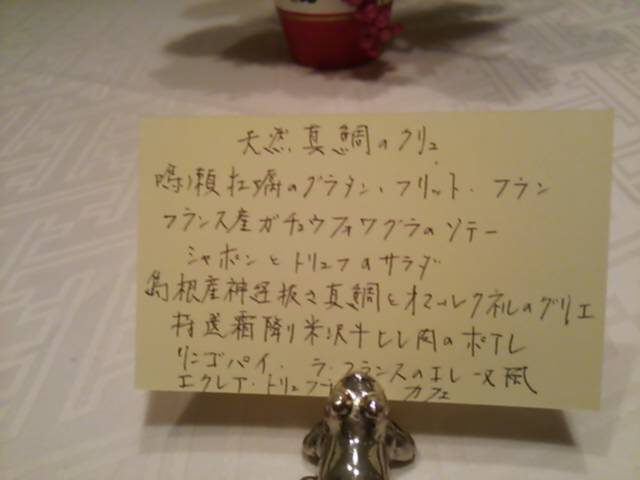 天然真鯛のクリュ
鳴瀬牡蠣のグラタン、フリット、フラン
フランス産ガチョウフォワグラのソテー
シャポンとトリュフのサラダ
島根産神経抜き真鯛とオマールクネルのグリエ
特選霜降り米沢牛ヒレ肉のポワレ
リンゴパイ、ラ・フランスのエレーヌ風
エクレア・トリュフ カフェ